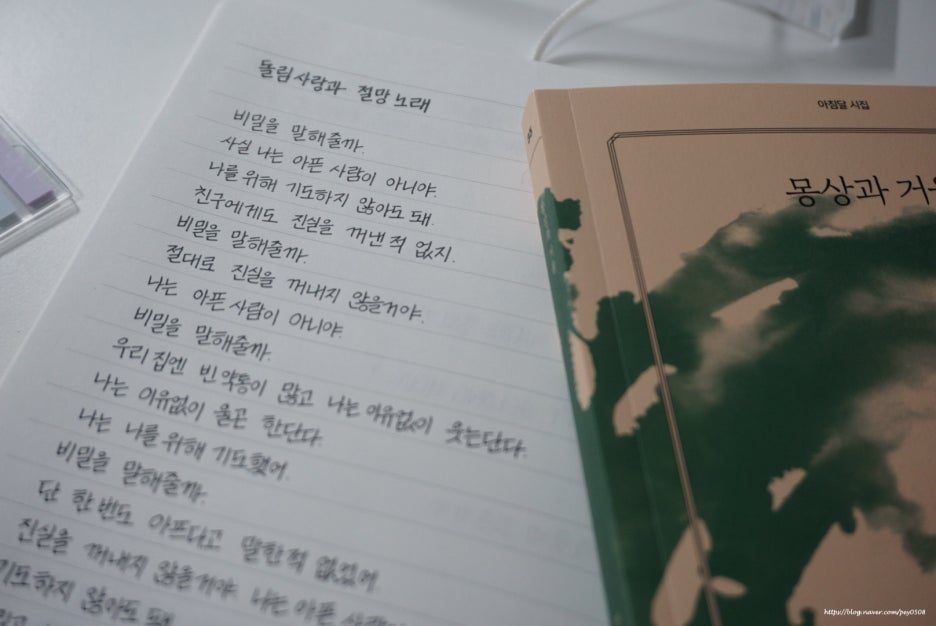 돌림사랑과 절망 노래
비밀을 말해줄까.
사실 나는 아픈 사람이 아니야.
나를 위해 기도하지 않아도 돼.
친구에게도 진실을 꺼낸 적 없지.
비밀을 말해줄까.
절대로 진실을 꺼내지 않을거야.
나는 아픈 사람이 아니야.
비밀을 말해줄까.
우리 집엔 빈 약통이 많고 나는 이유없이 웃는단다.
나는 이유없이 울곤 한단다.
나는 나를 위해 기도했어.
비밀을 말해줄까.
단 한 번도 아프다고 말한 적 없었어.
진실을 꺼내지 않을거야. 나는 아픈
기도하지 않아도 돼.
아침달 시집
몽상과
https://blog.naver.com/pey0508